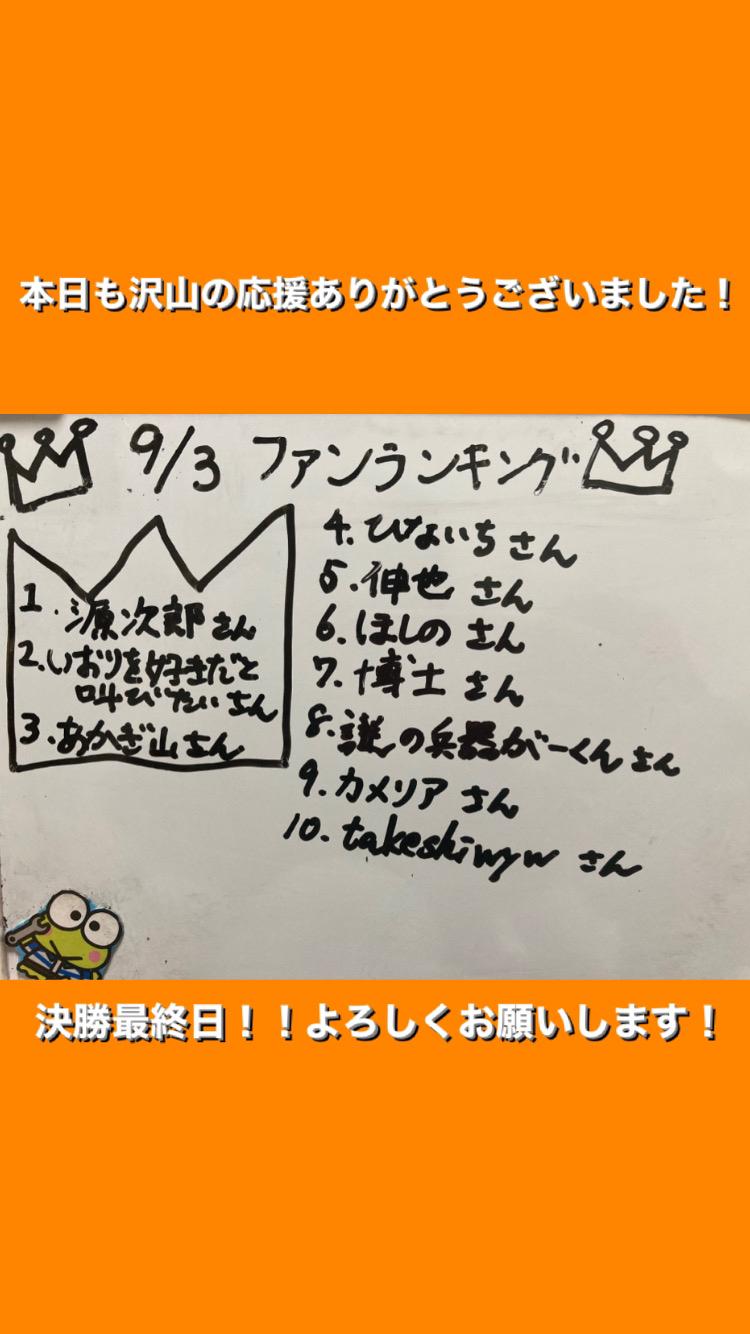 本日も沢山の応援ありがとうございました！
9/3 ファンランキング
1. 源次郎さん
2. いおりを好きだと
叫びたいさん
3. あかぎ山さん
4. ぴょいちさん
5. 伸也さん
6. ほしのさん
7. 博士さん
8. 謎の兵器がーくんさん
9. カメリアさん
10. takeshiwywさん
決勝最終日！！よろしくお願いします！